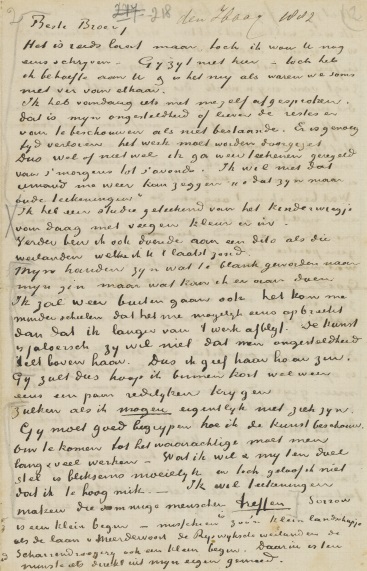 218 den Haag 1882 (2
Beste Broer,
Het is reeds laat maar toch ik wou U nog
eens schryven. – Gy zyt niet hier – doch heb
ik behoefte aan U & is het my als waren we soms
niet ver van elkaar.
Ik heb vandaag iets met mezelf afgesproken.
dat is myn ongesteldheid of liever de restes er
van te beschouwen als niet bestaande. Er is genoeg
tyd verloren het werk moet worden doorgezet.
Dus wel of niet wel ik ga weer teekenen geregeld
van s'morgens tot s'avonds. Ik wil niet dat
iemand me weer kan zeggen "o dat zyn maar
oude teekeningen"
Ik heb een studie geteekend van het kinderwiegje
vandaag met vegen kleur er in.
Verder ben ik ook doende aan een dito als die
weilanden welke ik U t laatst zond.
Myn handen zyn wat te blank geworden naar
myn zin maar wat kan ik er aan doen
Ik zal weer buiten gaan ook het kan me
minder schelen dat het me mogelyk eens opbreekt
dan dat ik langer van 't werk afblyf. De kunst
is jaloersch zy wil niet dat men ongesteldheid
stelt boven haar. Dus ik geef haar haar zin.
Gy zult dus hoop ik binnen kort wel weer
eens een paar redelyken krygen
zulken als ik mogen eigentlyk niet ziek zyn.
Gy moet goed begrypen hoe ik de kunst beschouw.
Om te komen tot het waarachtige moet men
lang & veel werken – Wat ik wil & my ten doel
stel is bliksems moeielyk en toch geloof ik niet
dat ik te hoog mik. – Ik wil teekeningen
maken die sommige menschen treffen Sorrow
is een klein begin – misschien zoo'n klein landschapje
als de laan v Meerdervoort de Ryswyksche weilanden de
Scharrendroogery ook een klein begin. Daarin is ten
minste iets direkt uit myn eigen gemoed.